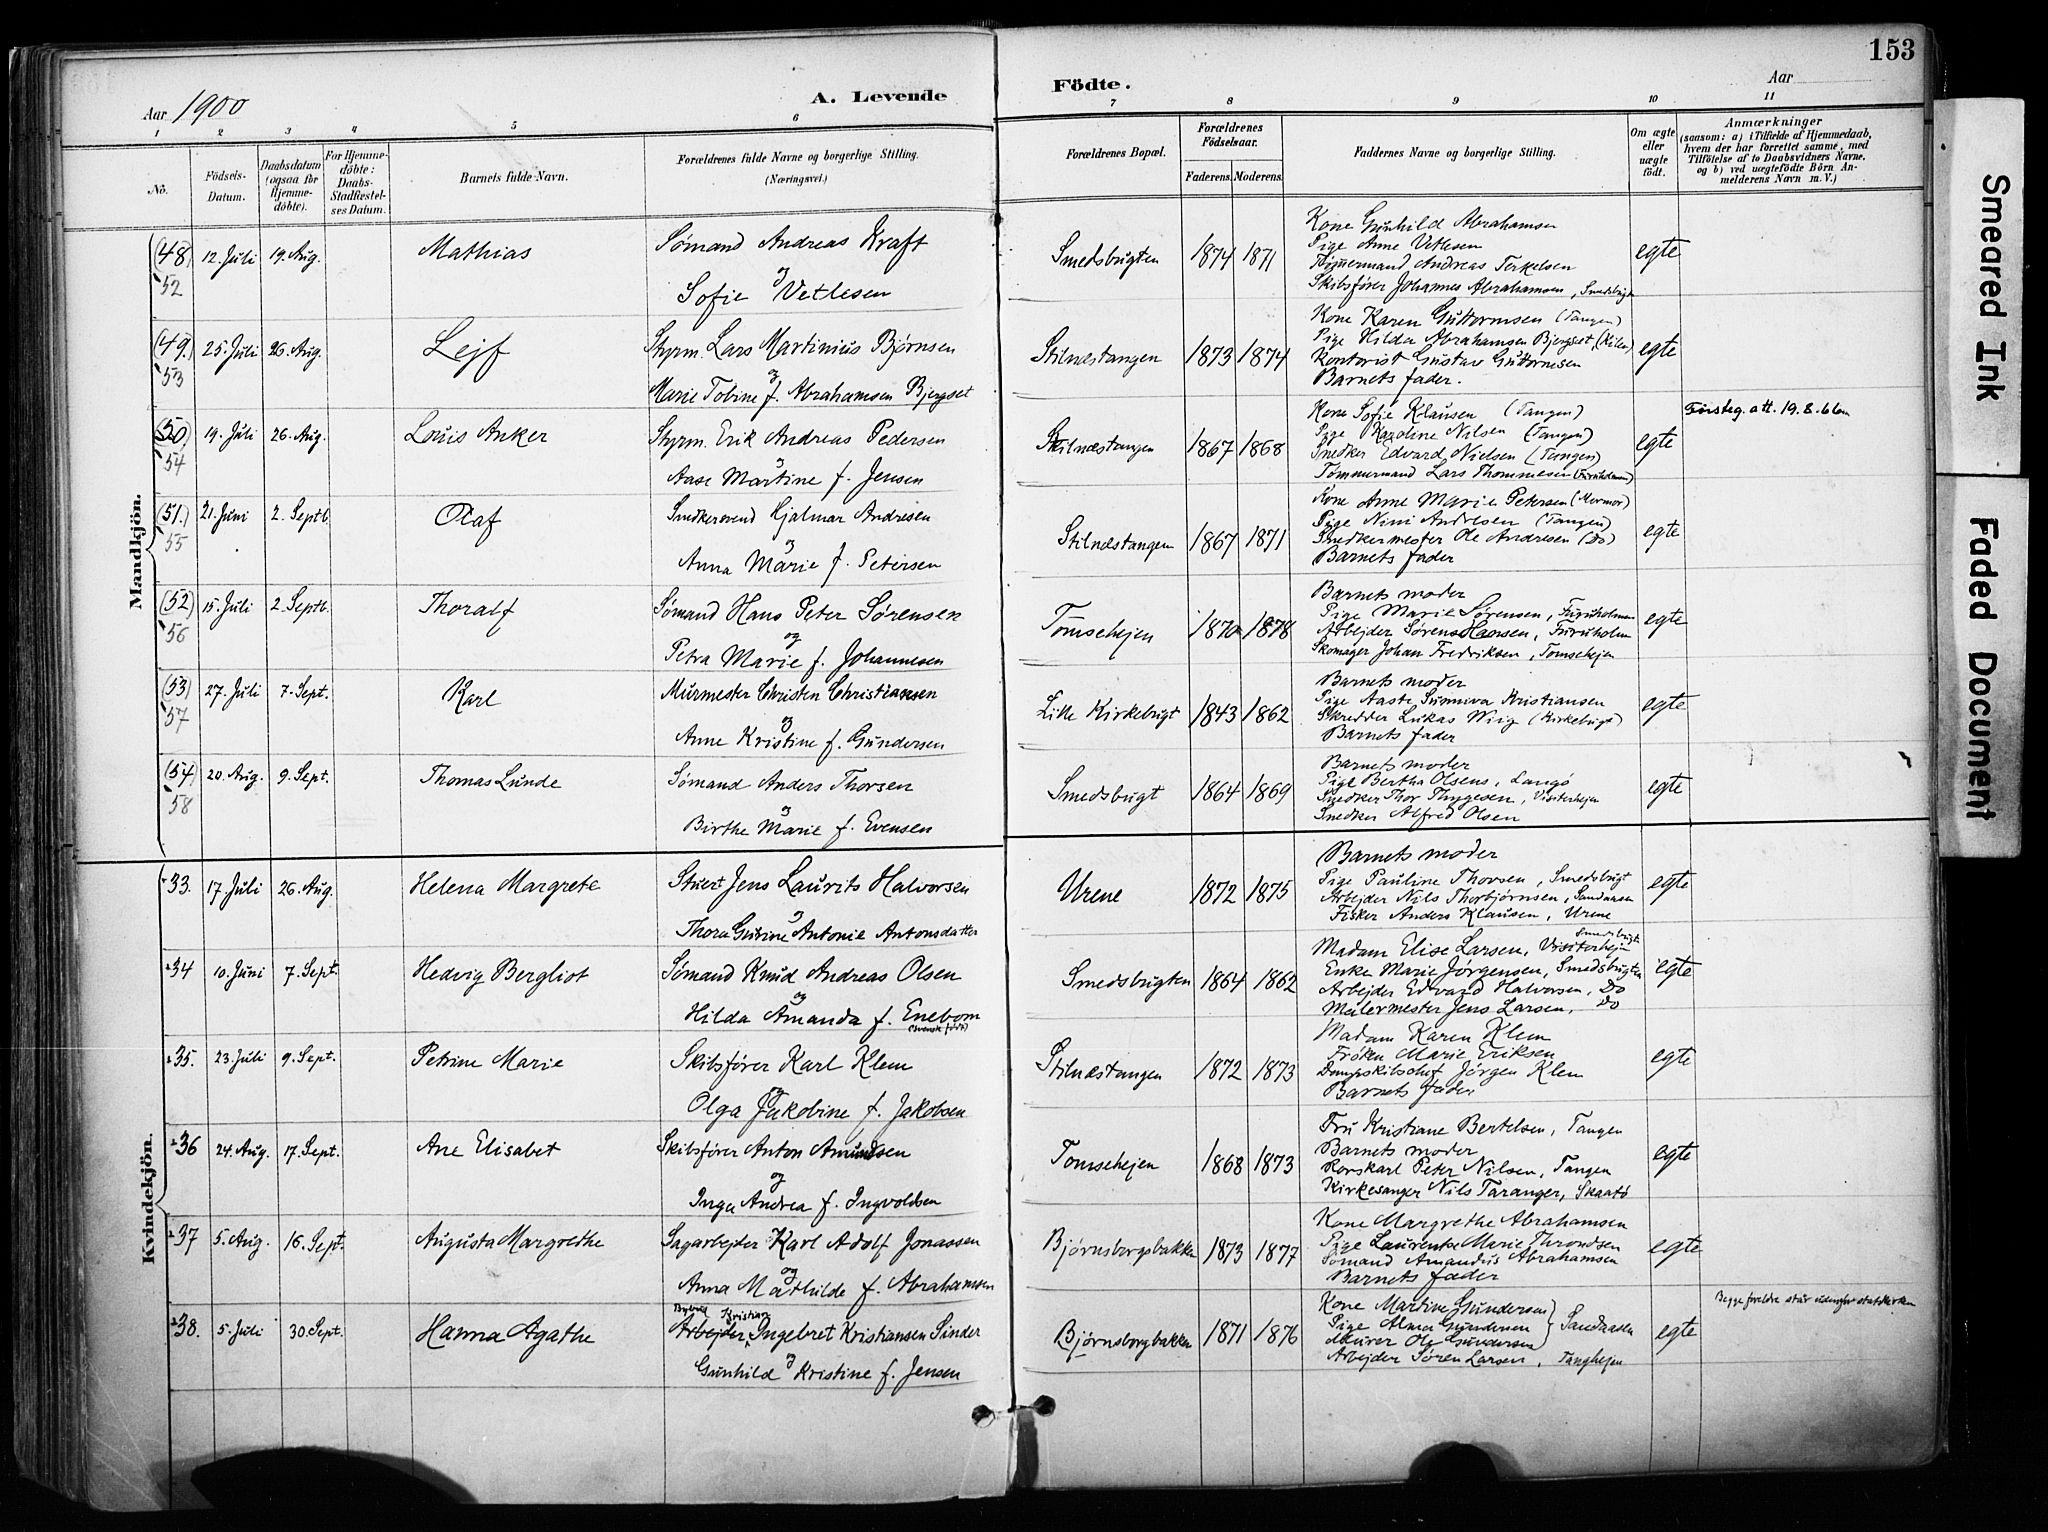 153
Aar 1900
A. Levende
Födte.
Aar
1 2 3 4 5 6 7 8 9 10 11
No.
Födsels-Datum.
Daabsdatum (ogsaa for Hjemme-döbte).
For Hjemme-döbte: Daabs-Stadfæstel-ses Datum.
Barnets fulde Navn.
Forældrenes fulde Navne og borgerlige Stilling. (Næringsvei.)
Forældrenes Bopæl.
Forældrenes Födselsaar.
Faderens. Moderens.
Faddernes Navne og borgerlige Stilling.
Om ægte eller uægte födt.
Anmærkninger
(saasom: a) i Tilfælde af Hjemmedaab, hvem der har forrettet samme, med Tilföielse af to Daabsvidners Navne. og b) ved uægtefödte Börn Anmelderens Navn m. V.)
Mandkjön.
(48) 52 12. Juli 19. Aug. Mathias
Sømand Andreas Kraft
og
Sofie Vetlesen
Smedsbugten 1874 1871
Kone Gunhild Abrahamsen
Pige Anne Vetlesen
Tømmermand Andreas Terkelsen
Skibsfører Johannes Abrahamsen, Smedsbugten
egte
(49.) 53 25. Juli 26. Aug. Lejf
Styrm. Lars Martinius Bjørnsen
og
Marie Tobine f. Abrahamsen Bjergset
Stilnæstangen 1873 1874
Kone Karen Guttormsen (Tangen)
Pige Hilda Abrahamsen Bjergset, (Kilen)
Kontorist Gustav Guttormsen
Barnets fader.
egte
(50) 54 19. Juli 26. Aug. Louis Anker
Styrm. Erik Andreas Pedersen
og
Aase Martine f. Jensen
Stilnæstangen 1867 1868
Kone Sofie Klausen (Tangen)
Pige Karoline Nilsen (Tangen)
Snedker Edvard Nielsen (Tangen)
Tømmermand Lars Thommesen (Furuholmen)
egte
19.8.
(51.) 55 21. Juni 2. Septb. Olaf
Snedkersvend Hjalmar Andresen
og
Anna Marie f. Petersen
Stilnæstangen 1867 1871
Kone Anne Marie Petersen (Mormor)
Pige Nini Andresen (Tangen)
Snedkermester Ole Andresen (Do)
Barnets fader
egte
(52) 56 15. Juli 2. Septb. Thoralf
Sømand Hans Peter Sørensen
og
Petra Marie f. Johannesen
Tomsehejen 1870 1878
Barnets moder
Pige Marie Sørensen, Furuholmen
Arbejder Sørens Hansen, Furuholm
Skomager Johan Fredriksen, Tomsehejen
egte
(53) 57 27. Juli 7. Sept. Karl
Murmester Christen Christiansen
og
Anne Kristine f. Gundersen
Lille Kirkebugt 1843 1862
Barnets moder
Pige Aaste Sunniva Kristiansen
Skredder Lukas Wiig (Kirkebugt)
Barnets fader
egte
(54) 58 20. Aug. 9. Sept. Thomas Lunde
Sømand Anders Thorsen
og
Birthe Marie f. Evensen
Smedsbugt 1864 1869
Barnets moder
Pige Bertha Olsens, Langö
Snedker Thor Thygesen, Visterhejen
Snedker Alfred Olsen
egte
Kvindekjön.
33. 17. Juli 26. Aug. Helena Margrete
Stuert Jens Laurits Halvorsen
og
Thora Gurine Antonie Antonsdatter
Urene 1872 1875
Barnets moder
Pige Pauline Thovsen, Smedsbugt
Arbejder Nils Thorbjørnsen, Sandaasen
Fisker Anders Klausen, Urene
egte
34 10. Juni 7. Sept. Hedvig Bergliot
Sømand Knud Andreas Olsen
og
Hilda Amanda f. Enebom
(Svensk født)
Smedsbugten 1864 1862
Smedsbugten
Madam Elise Larsen, Visterhejen
Enke Marie Jørgensen, Smedsbugten
Arbejder Edvard Halvorsen, Do
Malermester Jens Larsen, Do
egte
35. 23. Juli 9. Sept. Petrine Marie
Skibsfører Karl Klem
og
Olga Jakobine f. Jakobsen
Stilnæstangen 1872 1873
Madam Karen Klem
Frøken Marie Eriksen
Jörgen Klem
Barnets fader
egte
36 24. Aug. 17. Sept. Ane Elisabet
Skibsfører Anton Amundsen
og
Inga Andrea f. Ingvoldsen
Tomsehejen 1868 1873
Fru Kristiane Bertelsen, Tangen
Barnets moder
Rorskarl Peter Nilsen, Tangen
Kirkesanger Nils Taranger, Skaatö
egte
37 5. Aug. 16. Sept. Augusta Margrethe
Sagarbejder Karl Adolf Jonassen
og
Anna Mathilde f. Abrahamsen
Bjørnsborgsbakken 1873 1877
Kone Margrethe Abrahamsen
Pige Laurentse Marie Throndsen
Sømand Amandus Abrahamsen
Barnets fader
egte
38. 5. Juli 30. Sept. Hanna Agathe
Kristian
Arbejder, Ingebret Kristiansen Sinder
og
Gunhild Kristine f. Jensen
Bjørnsborgbakken 1871 1876
Kone Martine Gundersen
Pige Alma Gundersen
Murer Ole Gundersen } Sandaasen
Arbejder Sören Larsen, Tanghejen
egte
Begge foreldre står udenfor statskirken
Smeared Ink
Faded Document